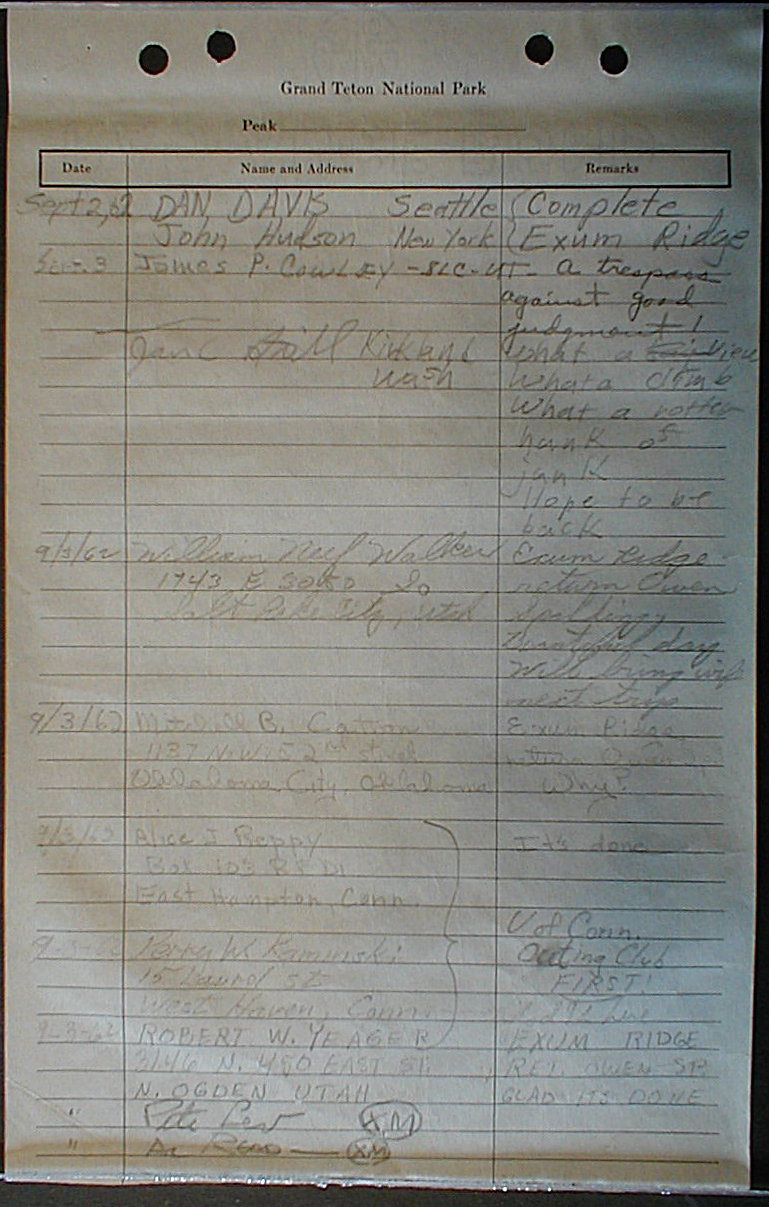 Grand Teton National Park
Peak
Date Name and Address Remarks
Sept 2, 62 DAN DAVIS Seattle { Complete
John Hudson New York { Exum Ridge
Sept. 3 James P. COWLEY - SLC - UT - a trespass
against good
judgment!
Kirkland What a view
Wash What a climb
What a rotten
hunk of
junk
Hope to be
back
9/3/62 William Neef Walker Exum Ridge
1743 E So return Owen
Salt Lake City, Utah Spalding,
Beautiful day
Will bring wife
next trip
9/3/62 B. Exum Ridge
1137 N.W. 52nd street return Owen Sp.
Oklahoma City, Oklahoma Why?
9/3/62 Alice J Beppy It's done
Box 103 R
East Hampton, Conn.
U of Conn.
9-3-62 Perry W. Kaminski Outing Club
15 Laurel St FIRST!
West Haven, Conn.
9-3-62 ROBERT W. YEAGER EXUM RIDGE
3146 N. 450 EAST ST. RET. OWEN SP.
N. OGDEN UTAH GLAD ITS DONE
" Pete XM
" Al Read — XM